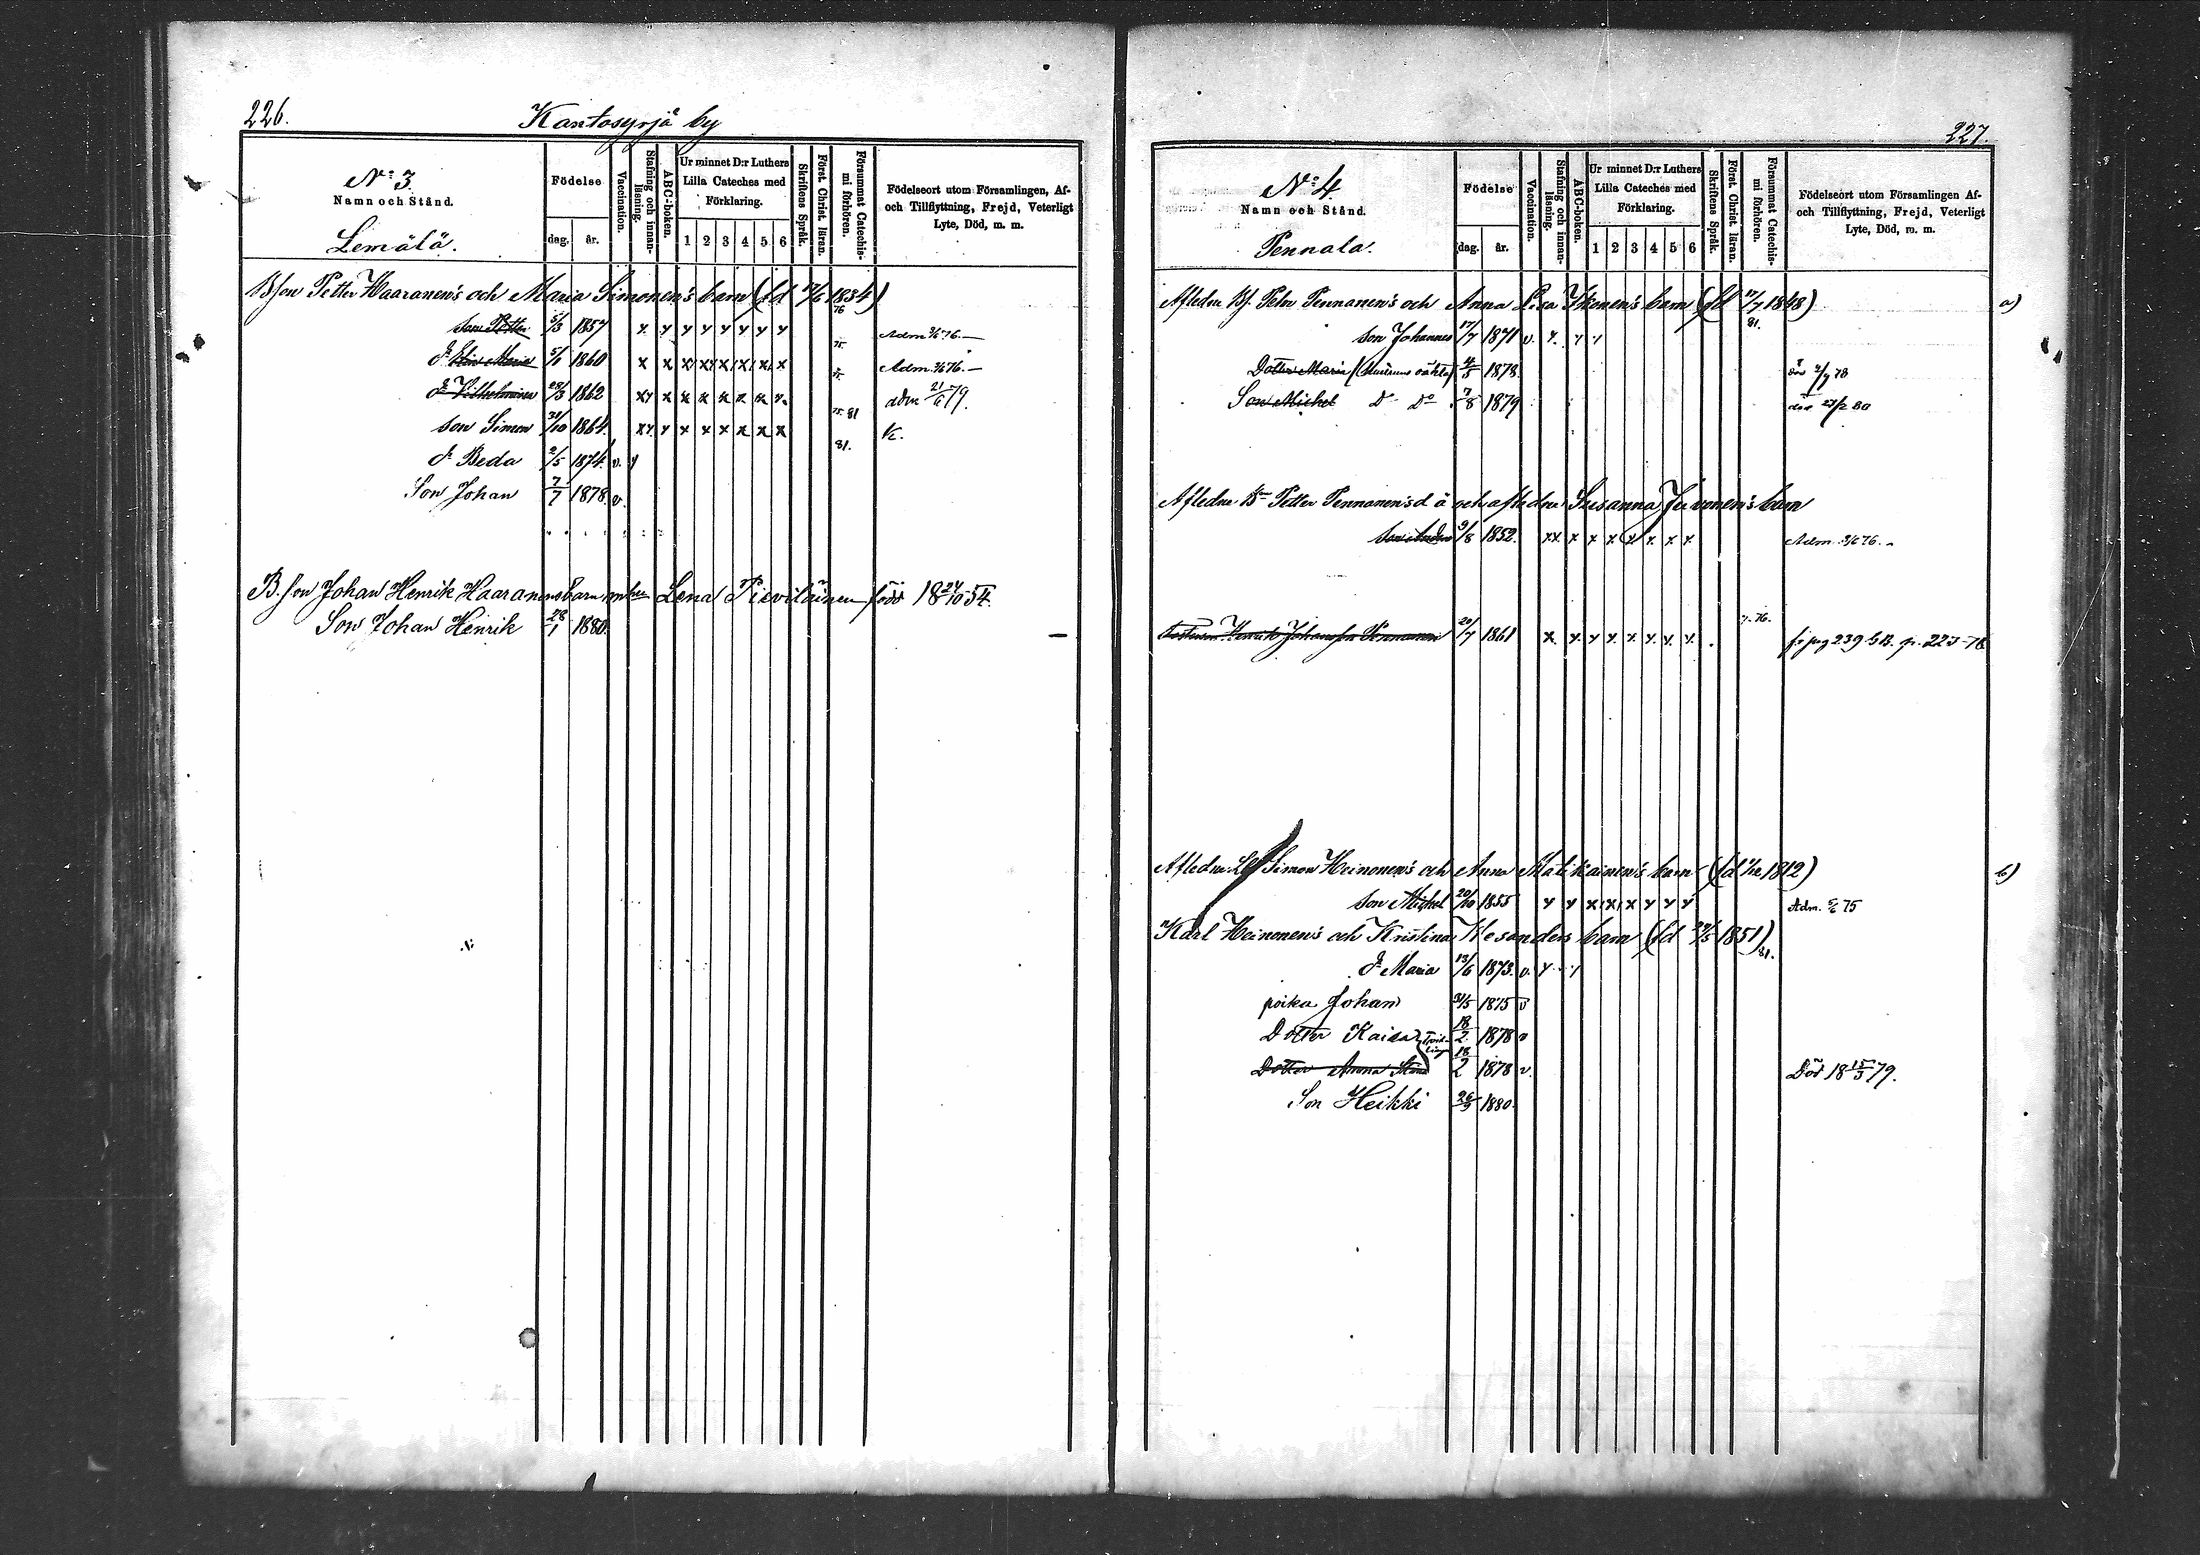 226.
Kantosyrjä by
No: 3.
Namn och Stånd.
Lemälä.
Födelse
dag. år.
Vaccination.
Stafning och innan-läsning.
ABC-boken.
Ur minnet D:r Luthers
Lilla Cateches med
Förklaring.
1 2 3 4 5 6
Skriftens Språk.
Först. Christ. läran.
Försummat Catechis-mi förhören.
Födelseort utom Församlingen, Af-
och Tillflyttning, Frejd, Veterligt
Lyte, Död, m. m.
Petter Haaranen's och Maria Simonen's barn (fd 1834)
76
son Petter 5/3 1857 x x x x x x x x Adm. 76.
75.
d. Maria 5/1 1860 x x x x x x x x Adm. 76.
d. Vilhelmina 28/3 1862 x x x x x x x x adm 21/6 79.
75 81
son Simon /10 1864. x x x x x x x x
81.
d. Beda 2/5 1874. v. y
Son Johan 7/7 1878. v.
B. son Johan Henrik Haaranens barn m. hu Lena Pieviläinen född 18 24/10 54.
Son Johan Henrik 28/1 1880.
227.
No: 4.
Namn och Stånd.
Pennala.
Födelse
dag. år.
Vaccination.
Stafning och innan-läsning.
ABC-boken.
Ur minnet D:r Luthers
Lilla Cateches med
Förklaring.
1 2 3 4 5 6
Skriftens Språk.
Först. Christ. läran.
Försummat Catechis-mi förhören.
Födelseort utom Församlingen Af-
och Tillflyttning, Frejd, Veterligt
Lyte, Död, m. m.
Afledne Pennanen's och Anna Lisa Ikonen's barn (fd 17/7 1848) a)
81.
son Johannes 17/7 1871 v. y. y
Dotter Maria 4/5 1878. död 2/7 78
Son Michel Do Do 7/8 1879 död 27/2 80
Afledne Petter Pennanen's d ä och afledna Susanna Juvonen's barn
son 9/8 1852. xx x x x x x x x Adm. 76.
7. 76.
Henrik Johansson Pennanen 20/7 1861 x. x x x x x x x fr pag 239 p. 223-78
Afledne Simon Heinonen's och Anna Matikainen's barn (fd 1812) b)
son Michel 20/10 1855 y y x x x y y y Adm. 5/6 75
Karl Heinonen's och Kristina Kesanders barn (fd 1851)
81.
d. Maria 13/6 1873. v. y
poika Johan 31/5 1875 v
Dotter Kaisa 18/2 1878 v
Dotter Anna 18/2 1878 v. Död 18 15/3 79.
Son Heikki 26/9 1880.